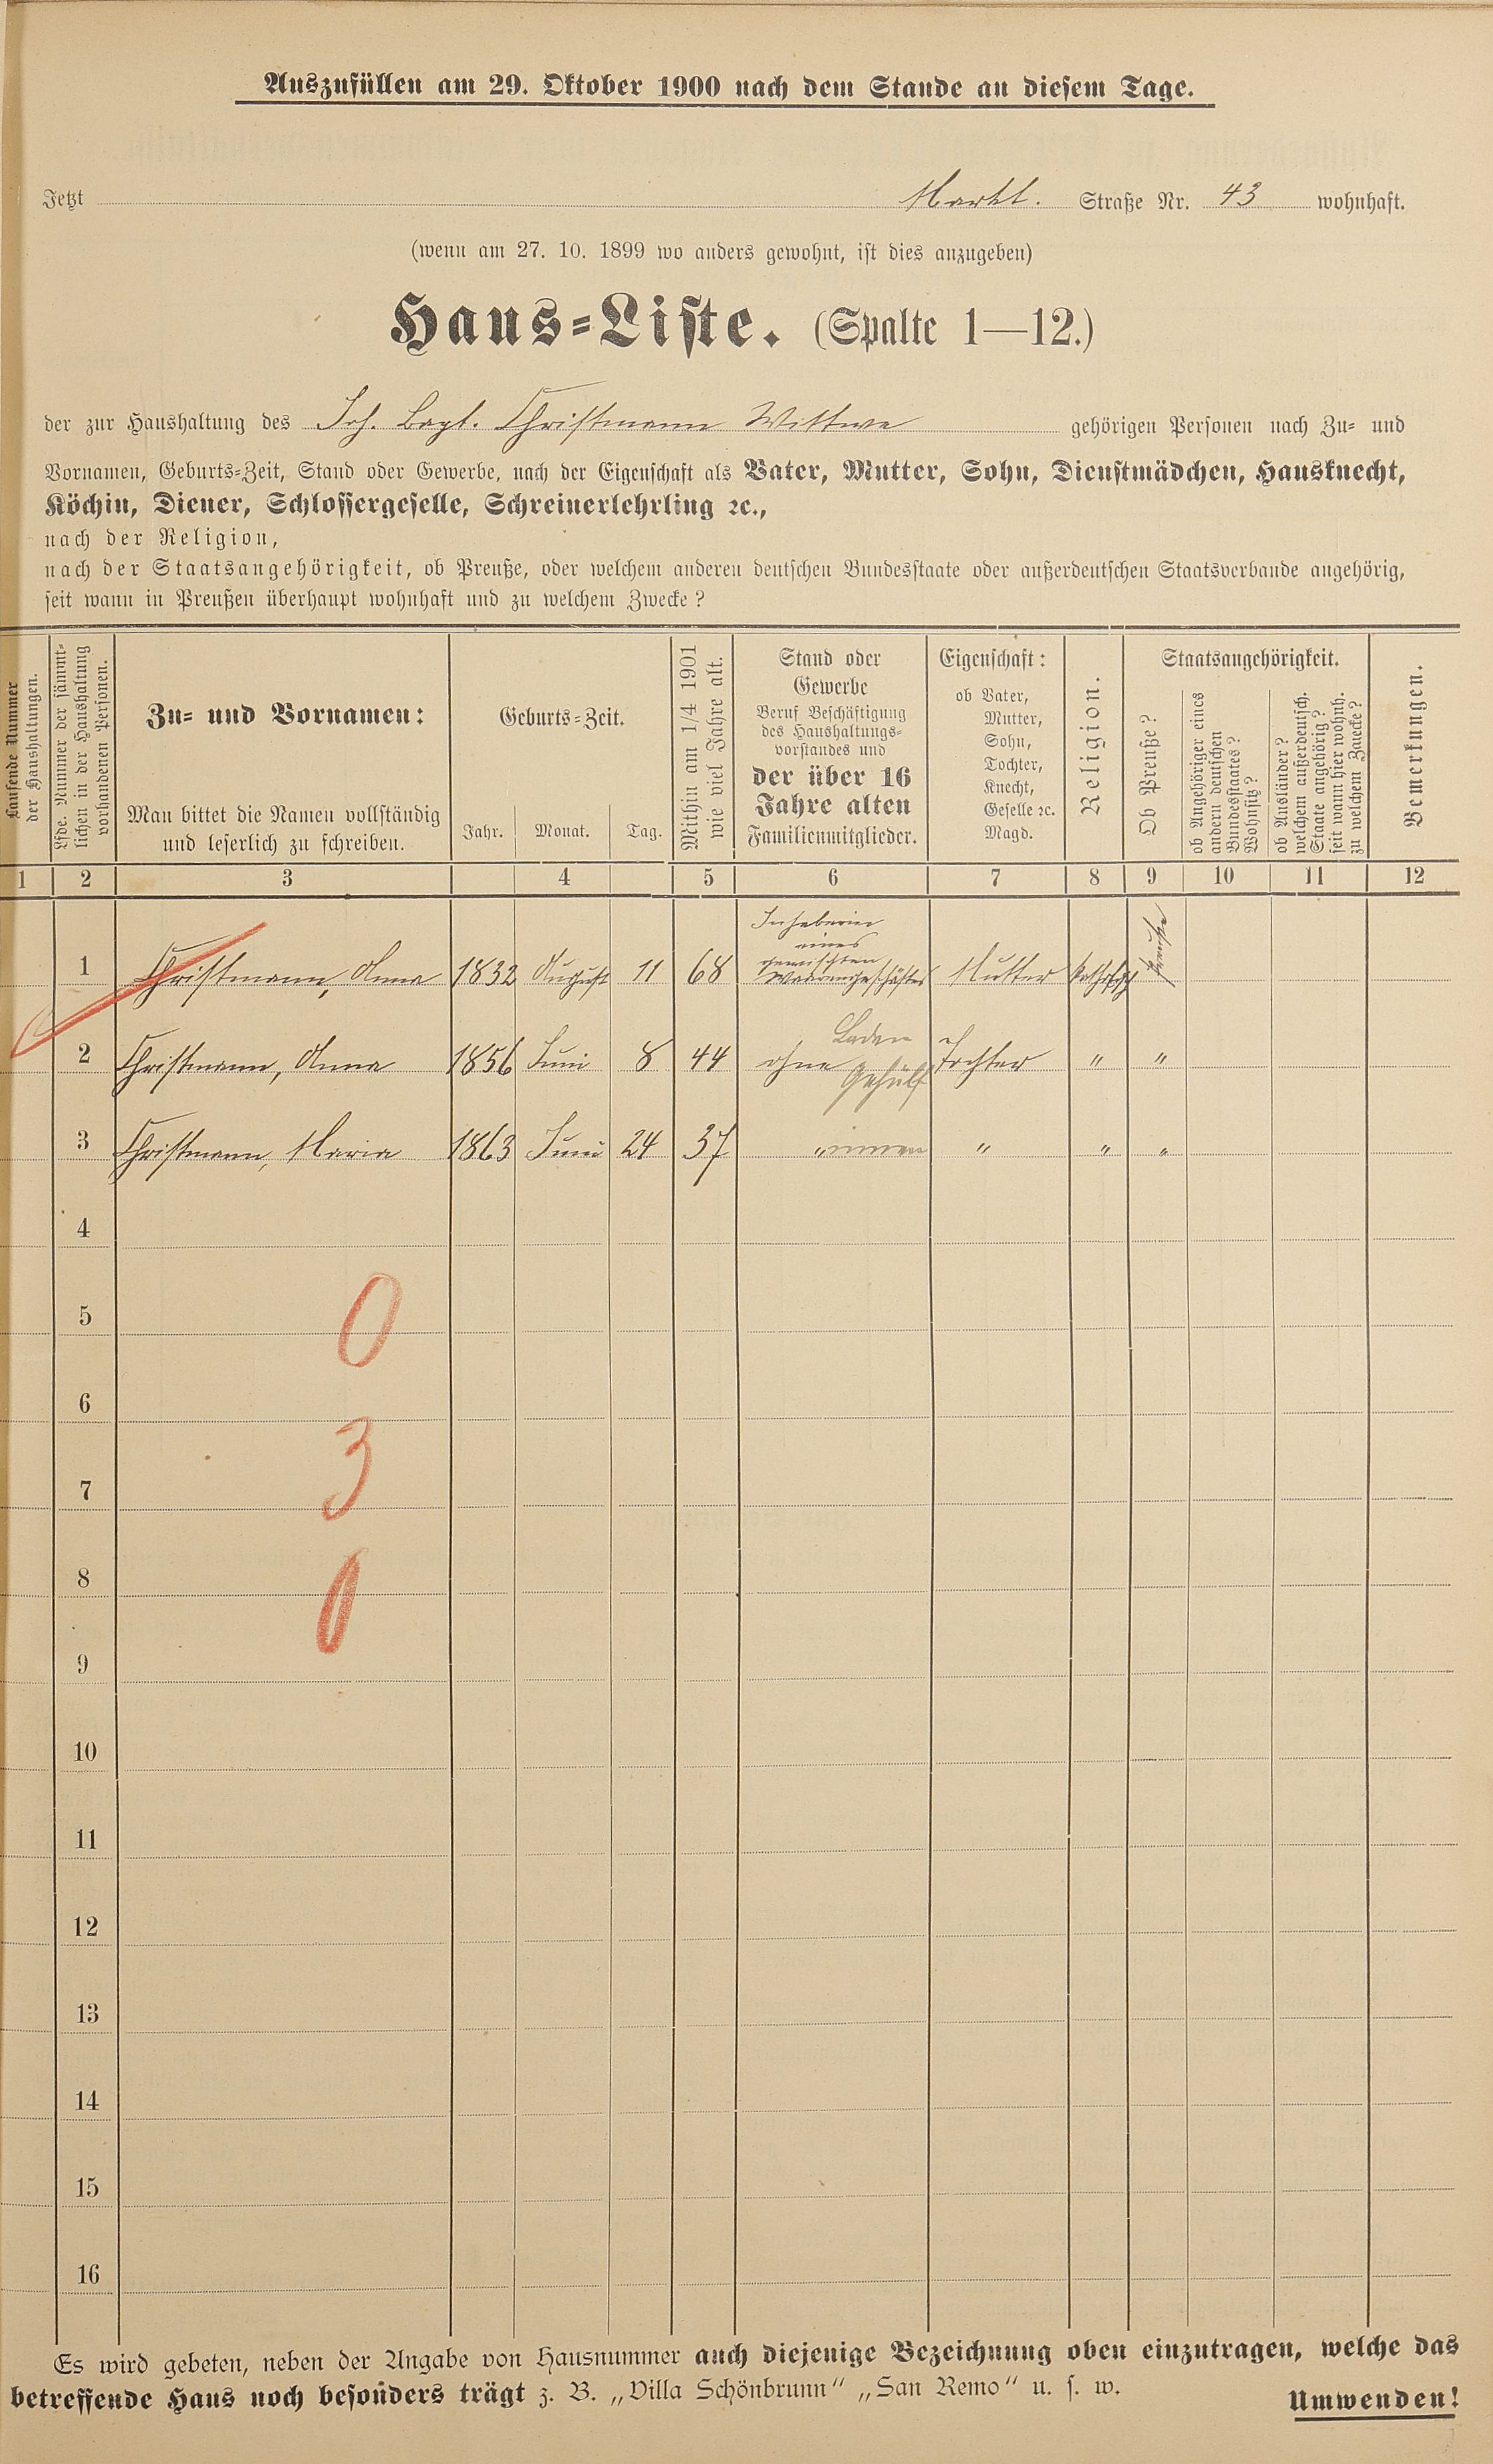 Auszufüllen am 29. Oktober 1900 nach dem Stande an diesem Tage.
Jetzt Markt. Straße Nr. 43 wohnhaft.
(wenn am 27. 10. 1899 wo anders gewohnt, ist dies anzugeben)
Haus-Liste. (Spalte 1—12.)
der zur Haushaltung des Joh. Bapt. Christmann Wittwe gehörigen Personen nach Zu- und
Vornamen, Geburts-Zeit, Stand oder Gewerbe, nach der Eigenschaft als Vater, Mutter, Sohn, Dienstmädchen, Hausknecht,
Köchin, Diener, Schlossergeselle, Schreinerlehrling ꝛc.,
nach der Religion,
nach der Staatsangehörigkeit, ob Preuße, oder welchem anderen deutschen Bundesstaate oder außerdeutschen Staatsverbande angehörig,
seit wann in Preußen überhaupt wohnhaft und zu welchem Zwecke?
Laufende Nummer
der Haushaltungen.
Lfde. Nummer der sämmt-
lichen in der Haushaltung
vorhandenen Personen.
Zu- und Vornamen:
Man bittet die Namen vollständig
und leserlich zu schreiben.
Geburts-Zeit.
Jahr. Monat. Tag.
Mithin am 1/4 1901
wie viel Jahre alt.
Stand oder
Gewerbe
Beruf Beschäftigung
des Haushaltungs-
vorstandes und
der über 16
Jahre alten
Familienmitglieder.
Eigenschaft:
ob Vater,
Mutter,
Sohn,
Tochter,
Knecht,
Geselle ꝛc.
Magd.
Religion.
Staatsangehörigkeit.
Ob Preuße?
ob Angehöriger eines
andern deutschen
Bundesstaates?
Wohnsitz?
ob Ausländer?
welchem außerdeutsch.
Staate angehörig?
seit wann hier wohnh.
zu welchem Zwecke?
Bemerkungen.
1 2 3 4 5 6 7 8 9 10 11 12
Inhaberin
eines
gemischten
1 Christmann, Anna 1832 August 11 68 Waarengeschäftes Mutter katholisch Preuße
Laden
2 Christmann, Anna 1856 Juni 8 44 ohne Gehülf Tochter " "
3 Christmann, Maria 1863 Juni 24 37 " innen " " "
4
5
0
6
7
3
8
0
9
10
11
12
13
14
15
16
Es wird gebeten, neben der Angabe von Hausnummer auch diejenige Bezeichnung oben einzutragen, welche das
betreffende Haus noch besonders trägt z. B. „Villa Schönbrunn" „San Remo" u. s. w.
Umwenden!